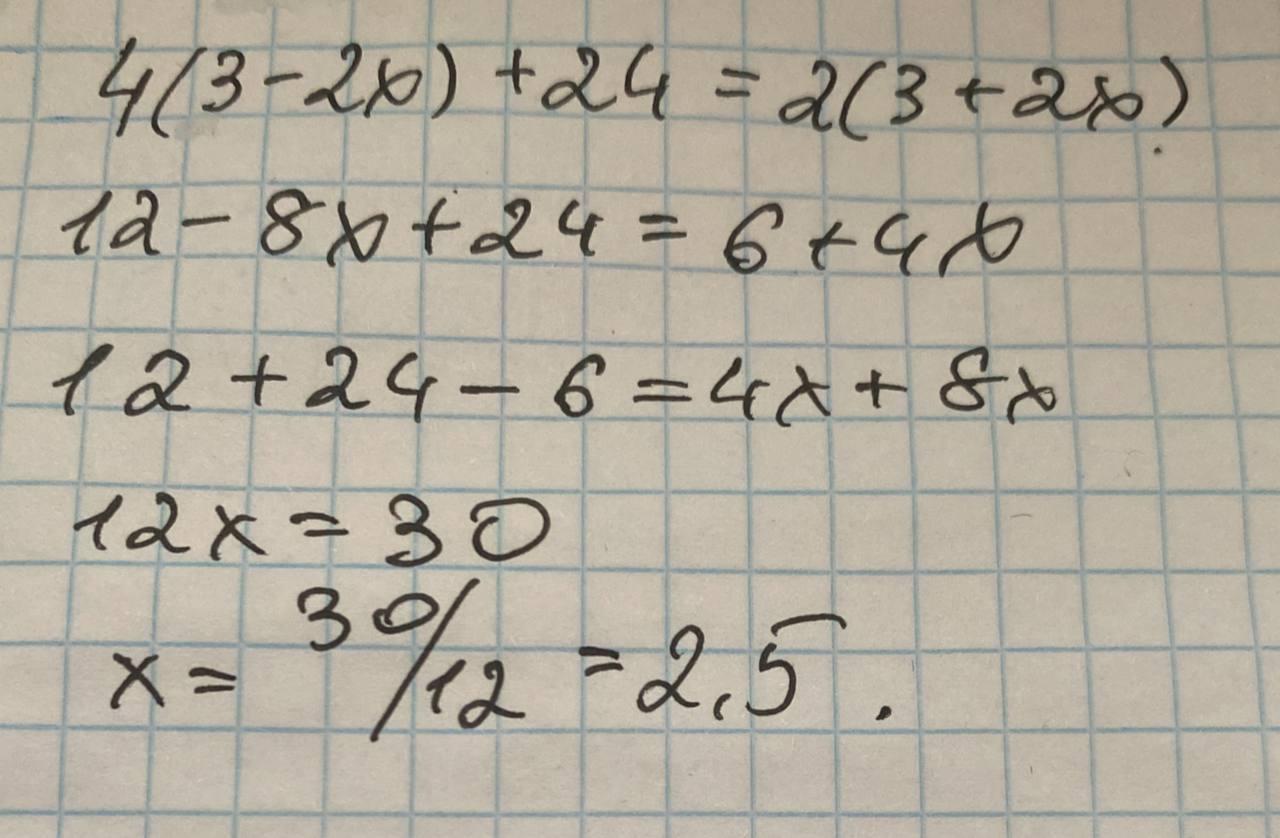 4(3-2x)+24=2(3+2x)
12-8x+24=6+4x
12+24-6=4x+8x
12x=30
x=30/12=2,5.